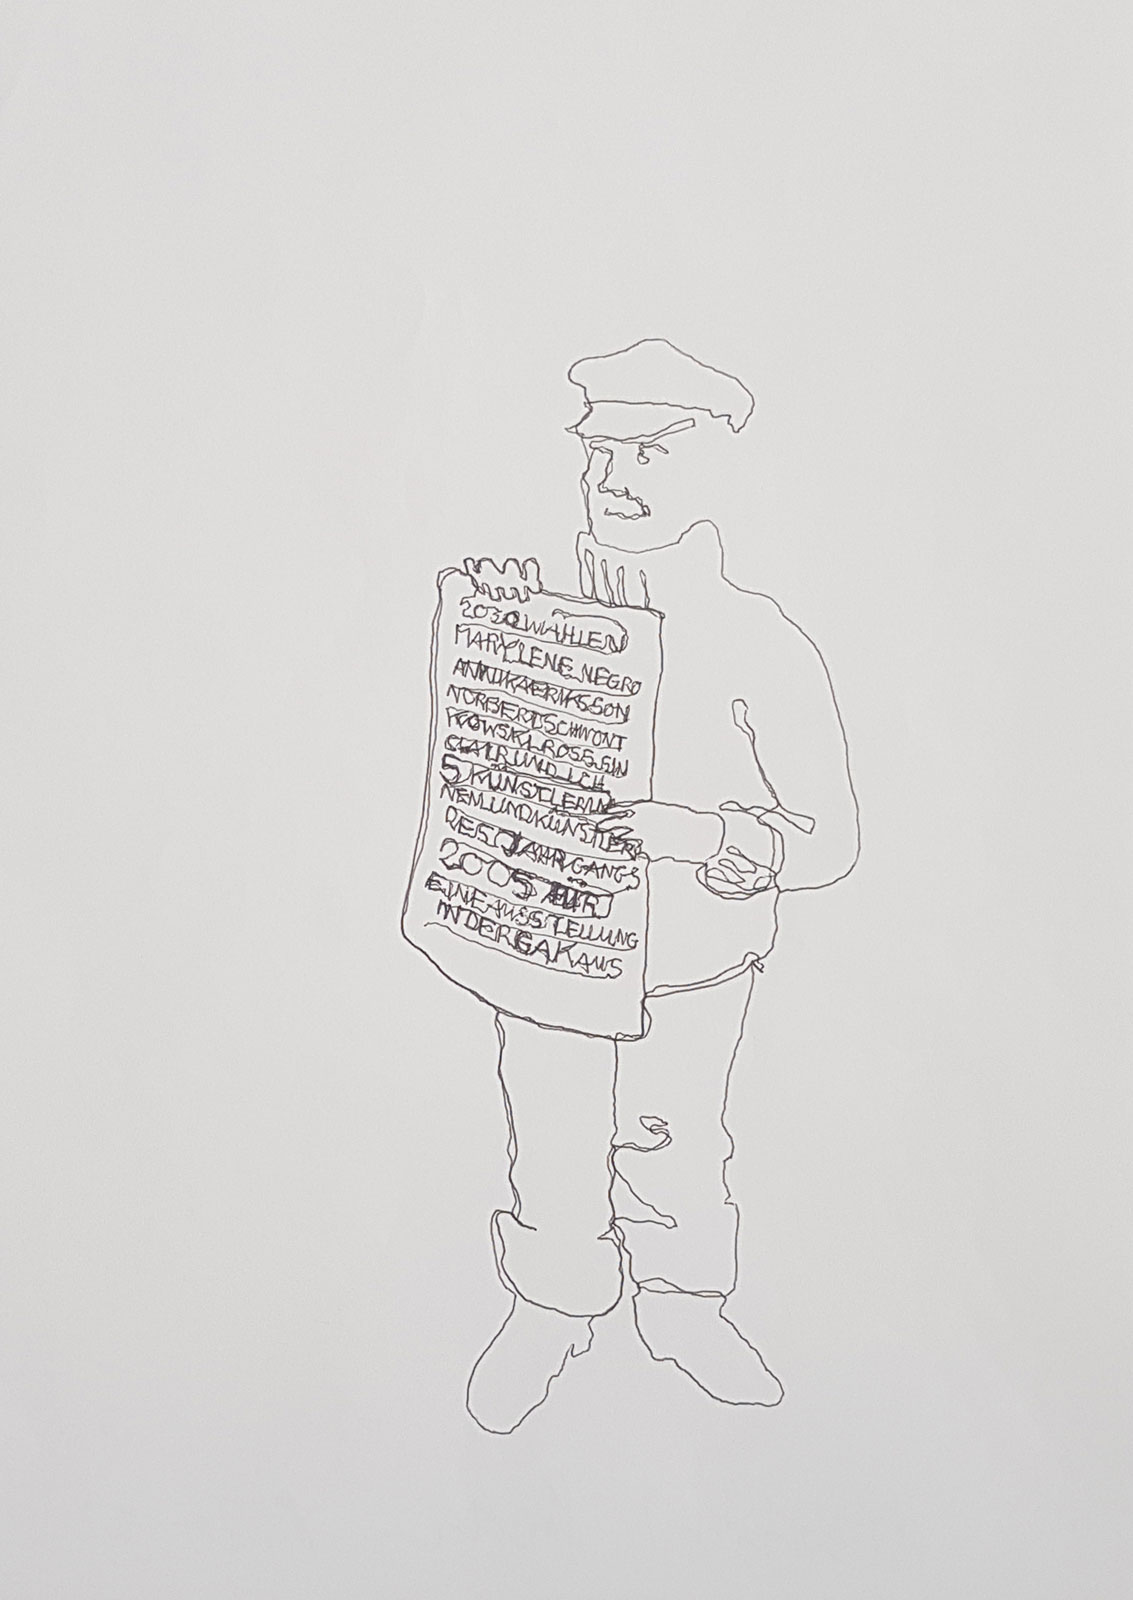 2030 WÄHLEN
MARYLENE NEGRO
ANNIKA ERIKSSON
NORBERT SCHWONT
KOWSKI, ROSS SIN
CLAIR UND ICH
5 KÜNSTLERIN
NEN UND KÜNSTLER
DES JAHRGANGS
2005 FÜR
EINE AUSSTELLUNG
IN DER GAK AUS